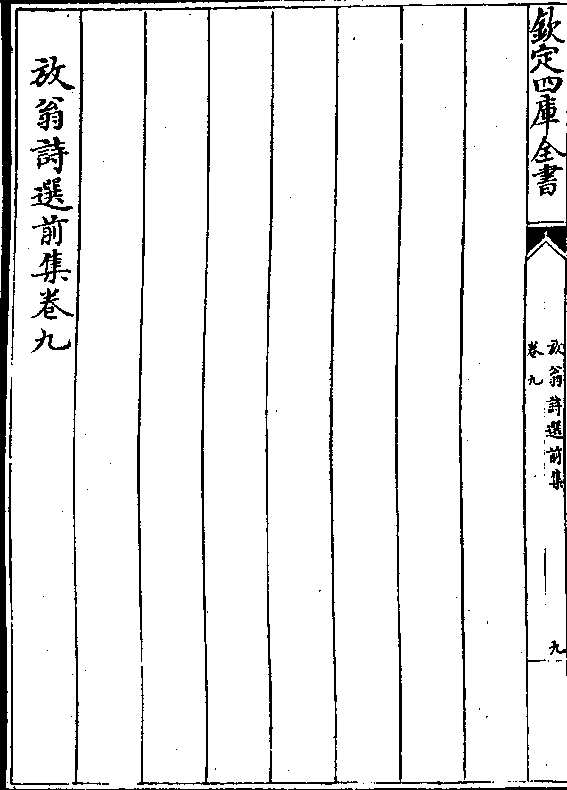 欽定四庫全書
放翁詩選前集
卷九
九
放翁詩選前集卷九